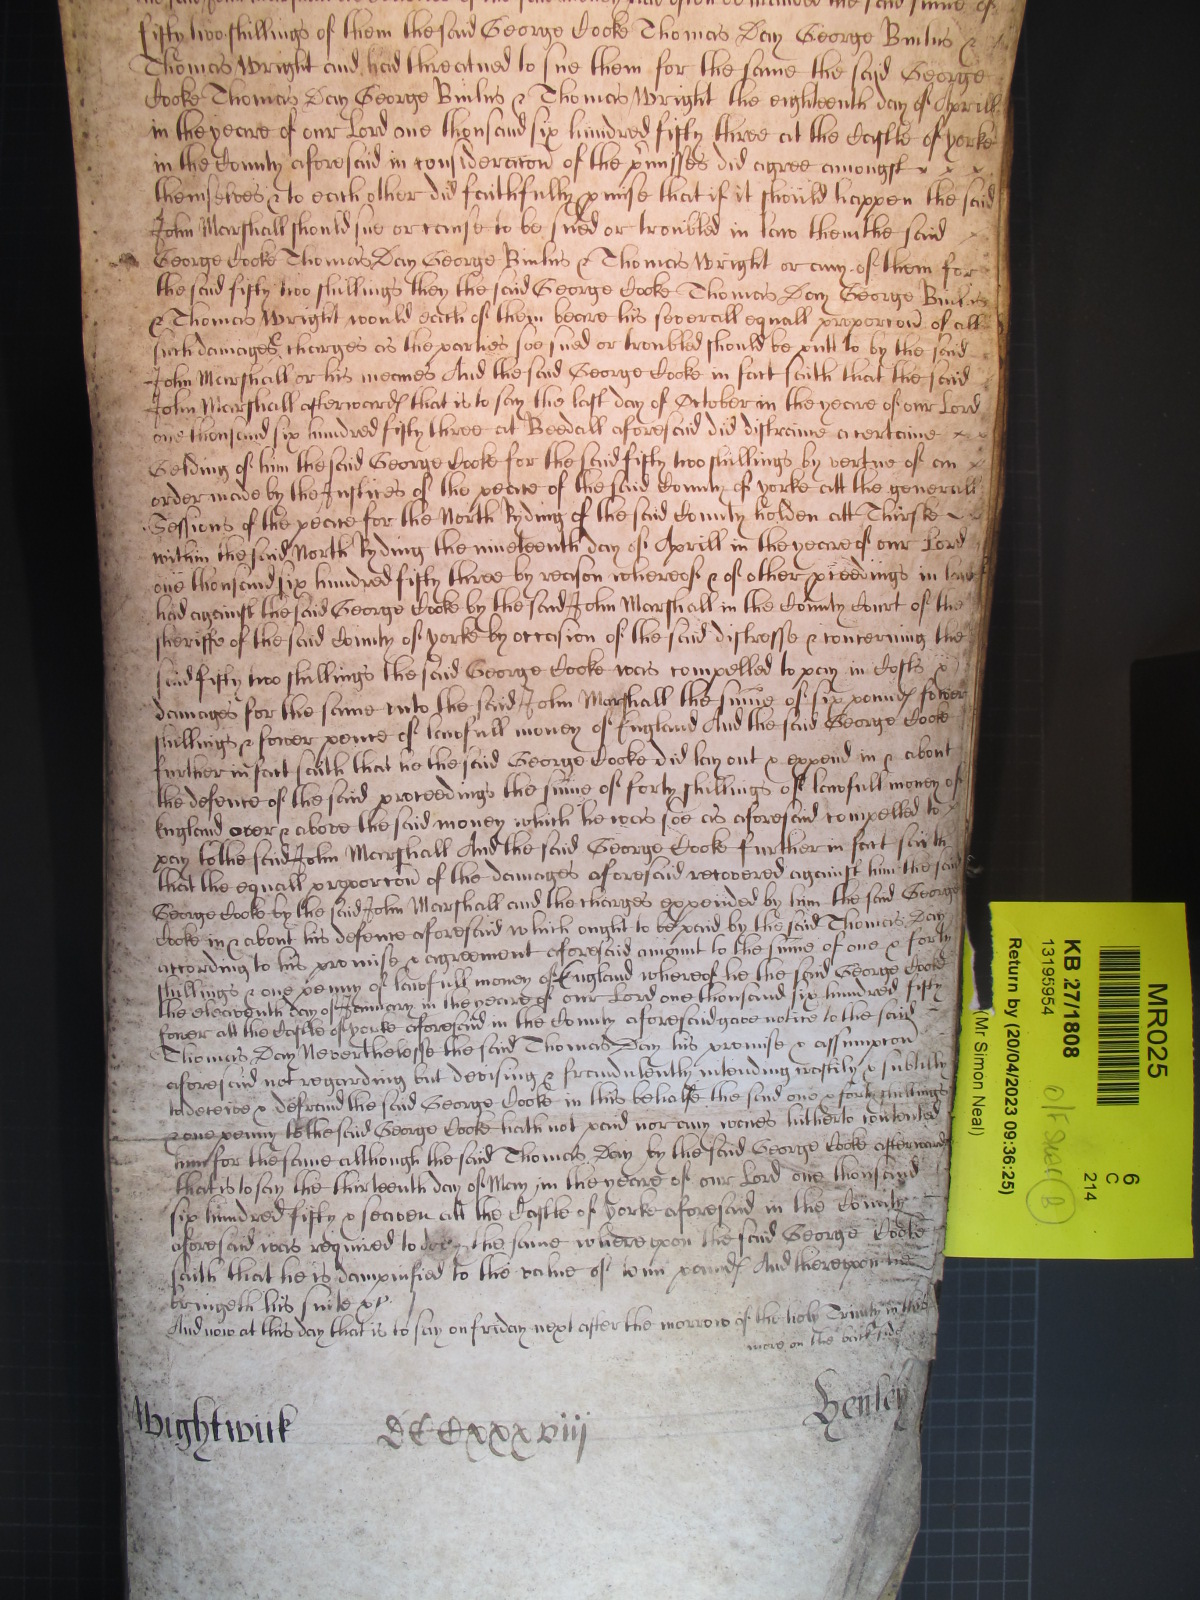 fifty two shillings of them the said George Cooke Thomas Day George Binlus &
Thomas Wright and had threatned to sue them for the same the said George
Cooke Thomas Day George Binlus & Thomas Wright the eighteenth day of Aprill
in the yeare of our Lord one thousand six hundred fifty three at the Castle of yorke
in the County aforesaid in consideracon of the p'misses did agree amongst
themselves & to each other did faithfully pmise that if it should happen the said
John Marshall should sue or cause to be sued or troubled in law them the said
George Cooke Thomas Day George Binlus & Thomas Wright or any of them for
the said fifty two shillings they the said George Cooke Thomas Day George Binlus
& Thomas Wright would each of them beare his severall equall proporcon of all
such damages & charges as the parties soe sued or troubled should be putt to by the said
John Marshall or his meanes And the said George Cooke in fact saith that the said
John Marshall afterwards that is to say the last day of October in the yeare of our Lord
one thousand six hundred fifty three at Beedall aforesaid did distraine a certaine
Gelding of him the said George Cooke for the said fifty two shillings by vertue of an
order made by the Justices of the peace of the said County of yorke att the generall
Sessions of the peace for the North Ryding of the said County holden att Thirske
within the said North Ryding the nineteenth day of Aprill in the yeare of our Lord
one thousand six hundred fifty three by reason whereof & of other pceedings in law
had against the said George Cooke by the said John Marshall in the County Court of the
sheriffe of the said County of yorke by occasion of the said distresse & concerning the
said fifty two shillings the said George Cooke was compelled to pay in Costs &
damages for the same unto the said John Marshall the sume of six pounds fower
shillings & fower pence of lawfull money of England And the said George Cooke
further in fact saith that he the said George Cooke did lay out & expend in & about
the defence of the said proceedings the sume of forty shillings of lawfull money of
England over & above the said money which he was soe as aforesaid compelled to
pay to the said John Marshall And the said George Cooke further in fact saith
that the equall proporcon of the damages aforesaid recovered against him the said
George Cooke by the said John Marshall and the charges expended by him the said George
Cooke in & about his defence aforesaid which ought to be paid by the said Thomas Day
according to his promise & agreement aforesaid amount to the sume of one & forty
shillings & one penny of lawfull money of England whereof he the said George Cooke
the eleaventh day of January in the yeare of our Lord one thousand six hundred fifty
fower att the Castle of yorke aforesaid in the County aforesaid gave notice to the said
Thomas Day Neverthelesse the said Thomas Day his promise & assumpcon
aforesaid not regarding but devising & fraudulently intending craftily & subtilly
to deceive & defraud the said George Cooke in this behalfe the said one & forty shillings
& one penny to the said George Cooke hath not paid nor any waies hitherto contented
him for the same although the said Thomas Day by the said George Cooke afterwards
that is to say the thirteenth day of May in the yeare of our Lord one thousand
six hundred fifty & seaven att the Castle of Yorke aforesaid in the County
aforesaid was required to doe the same whereupon the said George Cooke
saith that he is dampnified to the value of pounds And thereupon
bringeth his suite &c
And now at this day that is to say on friday next after the morrow of the holy Trinity in this
more on the back side
Wightwick DCCCxxxviij Henley
MR025
KB 27/1808
13195954
Return by (20/04/2023 09:36:25)
(Mr Simon Neal)
6
C
214